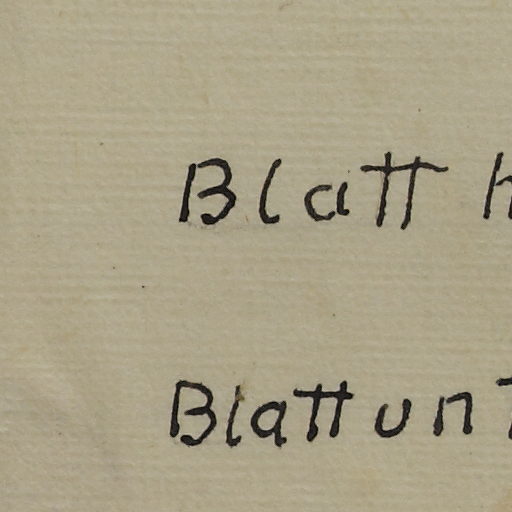 Blatt
Blatt un